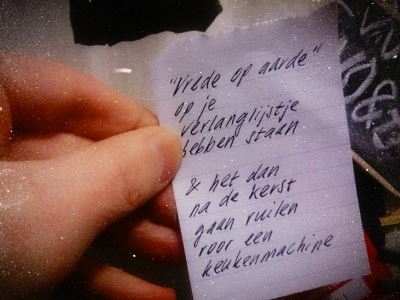 "Vrede op aarde"
op je
verlanglijstje
hebben staan
& het dan
na de kerst
gaan ruilen
voor een
keukenmachine